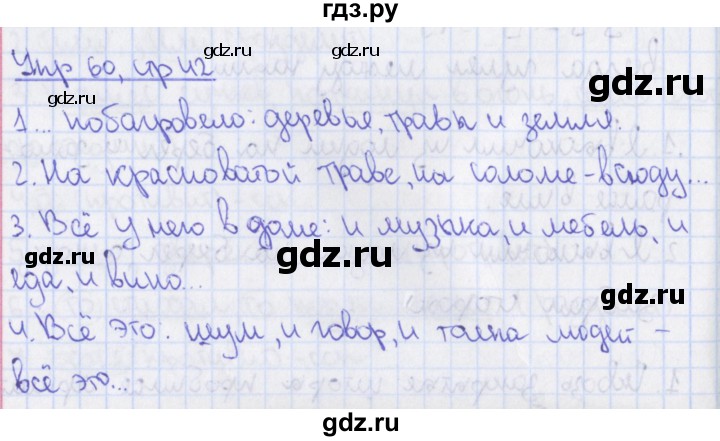 гдз.ру
Упр 60, стр 42
1... побагровело: деревья, травы и земля.
2. На красноватой траве, на соломе - всюду...
3. Всё у него в доме: и музыка, и мебель, и
еда, и вино...
4. Всё это: шум, и говор, и толпа людей -
всё это...
gdz.ru
gdz.ru
gdz.ru
gdz.ru
gdz.ru
gdz.ru
gdz.ru
gdz.ru